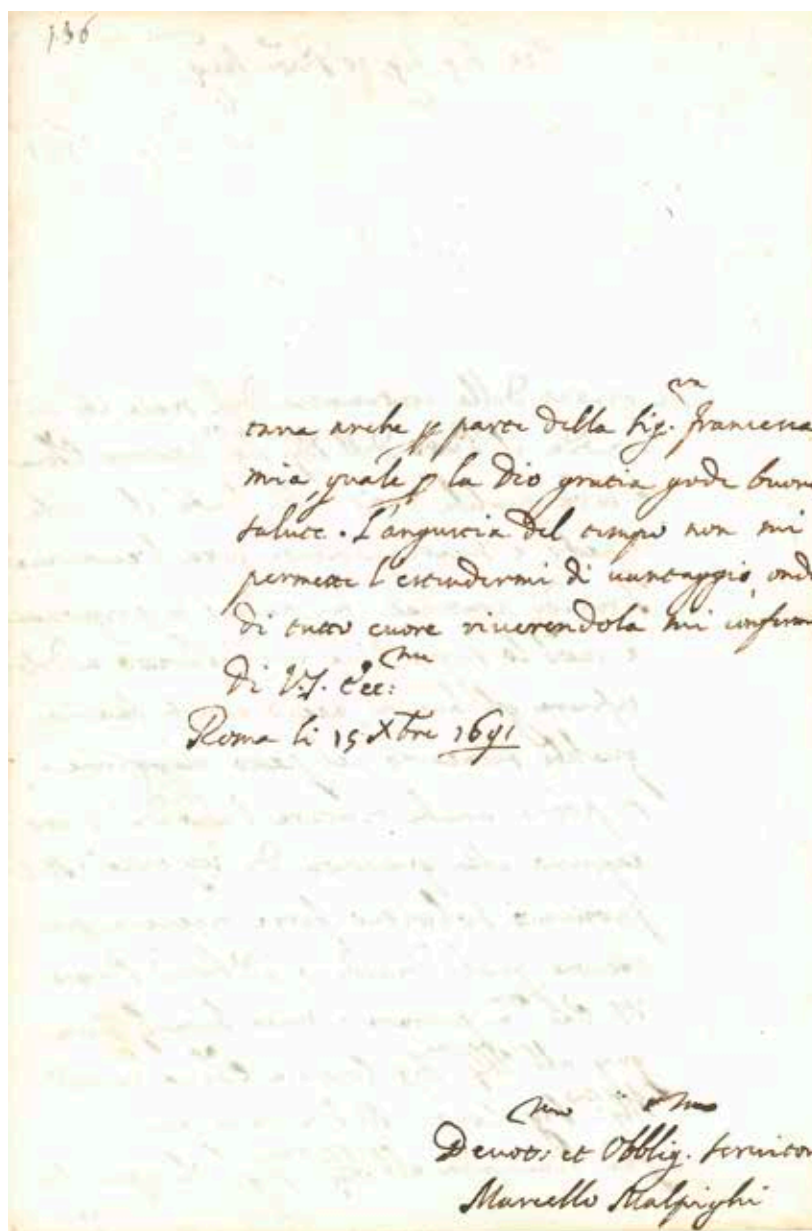 136
anche p parte della Sig.ra Francesca
mia, quale p la Dio gratia gode buona
salute. L'angustia del tempo non mi
permette l'estendermi di vantaggio, onde
di tutto cuore riverendola mi confermo
di V.S. Ecc:ma
Roma li 15 Xbre 1691
Devot.mo et Obblig.mo Servitor
Marcello Malpighi